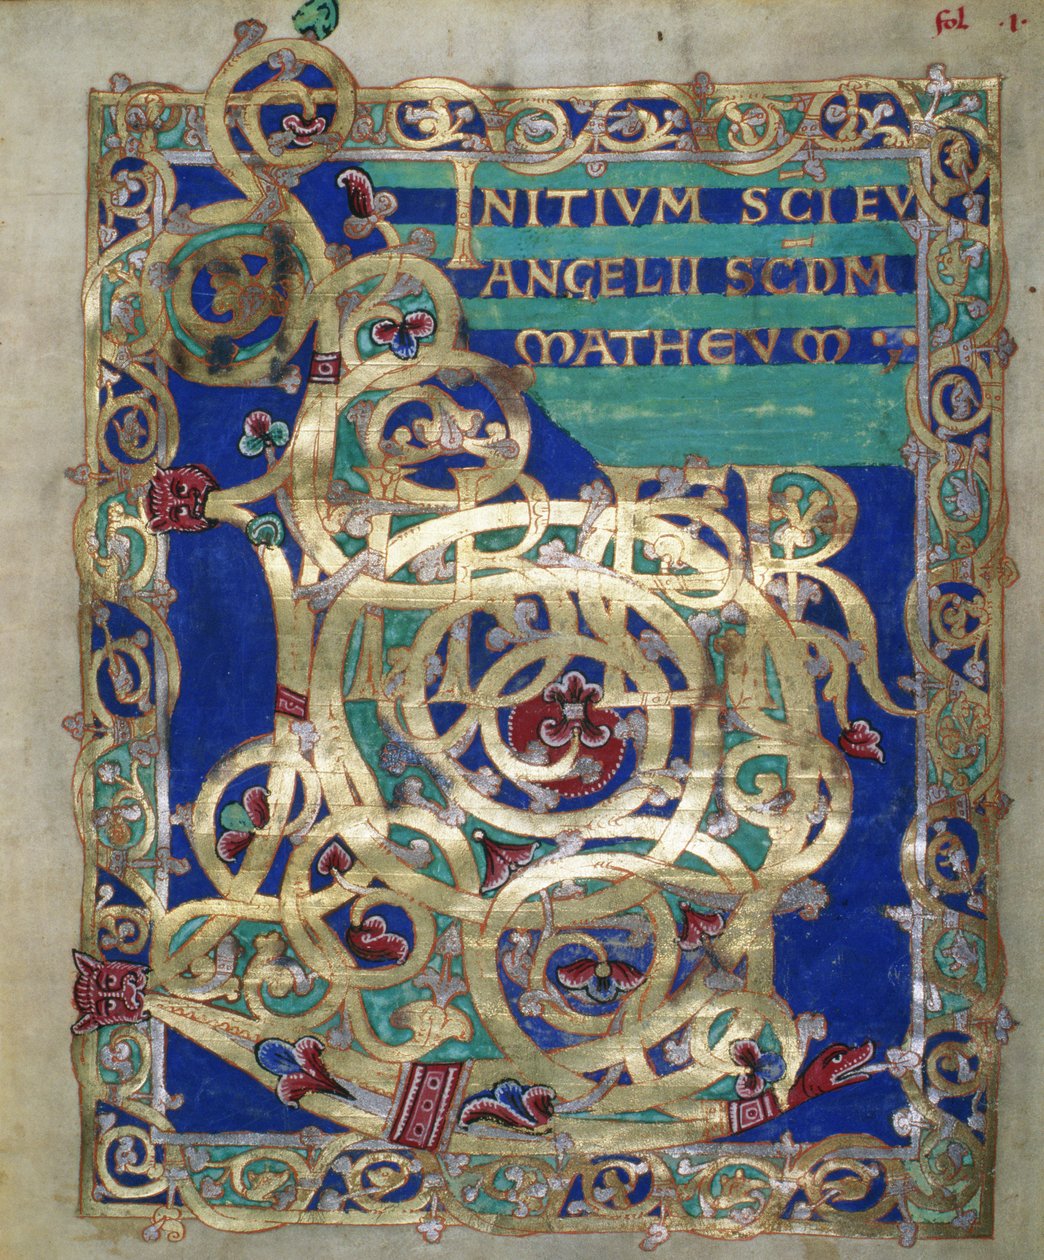 fol ·1·
INITIVM SCI EV
ANGELII SC̄DM
MATHEVM ·;